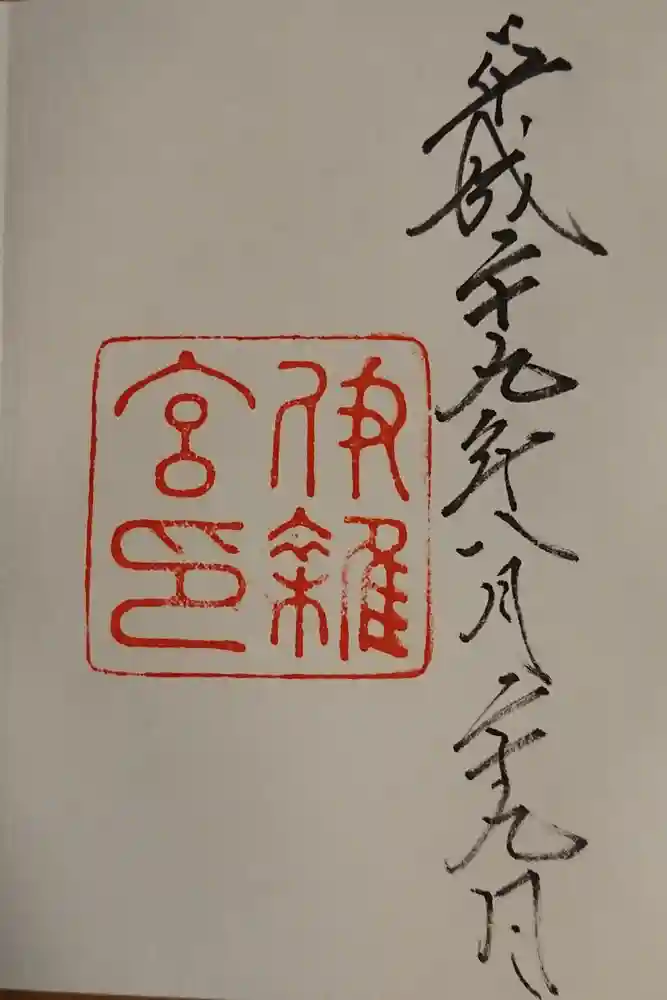 平成二十九年八月二十九日
伊雜
宮印